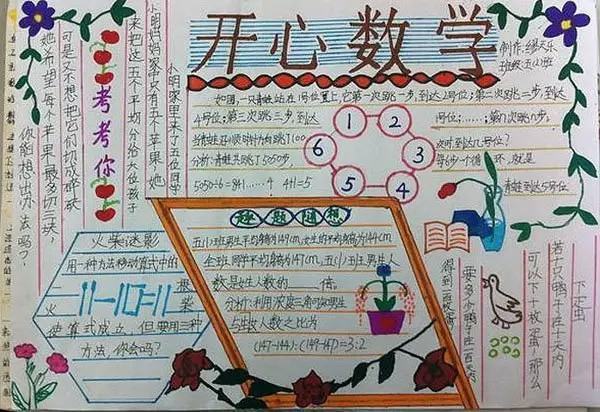 开心数学
制作:缪天乐
班级:五(2)班
如图,一只青蛙站在1号位置上,它第一次跳一步,到达2号位;第二次跳二步,到达
4号位;第三次跳三步,到达1号位;……;第n次跳n步,
当青蛙沿顺时针方向跳了100次时到达几号位?
分析:青蛙共跳了5050步,每6步一个循环,就是
5050÷6=841……4 4+1=5 青蛙到达5号位
1
2
3
4
5
6
考考你
小明家里来了五位同学
小明妈妈家中只有五个苹果,她
来把这五个平均分给六位孩子
可是又不想把它们切成碎块
她希望每个苹果最多切三块,
你能想出办法吗?
火柴谜影
用一种方法移动算式中的
一根火柴
使算式成立,但要用三种
方法,你会吗?
趣题随想
五(1)班男生平均身高为149cm,女生的平均身高为144cm
全班同学平均身高为147cm,五(1)班男生人
数是女生人数的____倍,
分析:利用浓度三角可知男生
与女生人数之比为
(147-144):(149-147)=3:2
下蛋
若十只鸭子在十天内
可以下十枚蛋,那么
要多少鸭子在一百天内
得到一百枚蛋